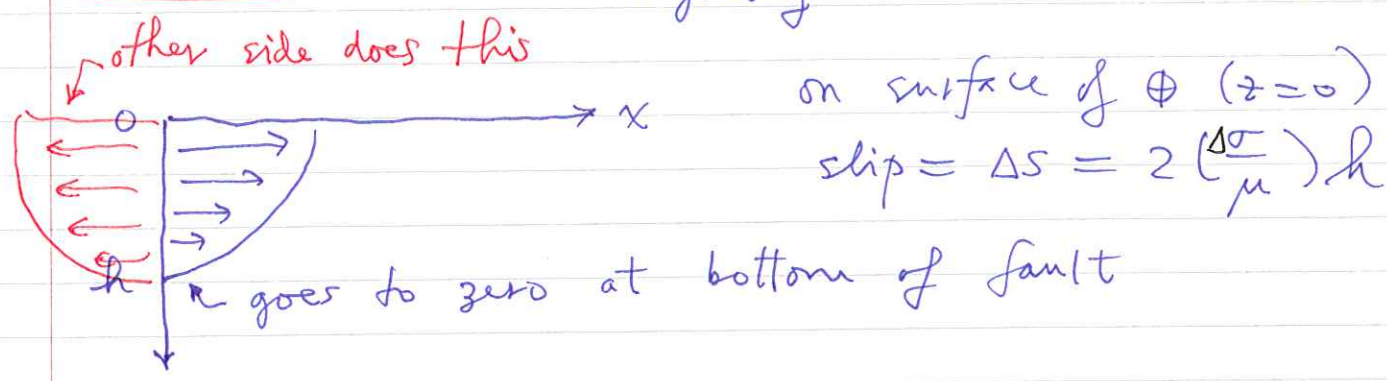 other side does this
on surface of ⊕ (z=0)
0
x
slip = Δs = 2 (Δσ/μ) h
h
goes to zero at bottom of fault